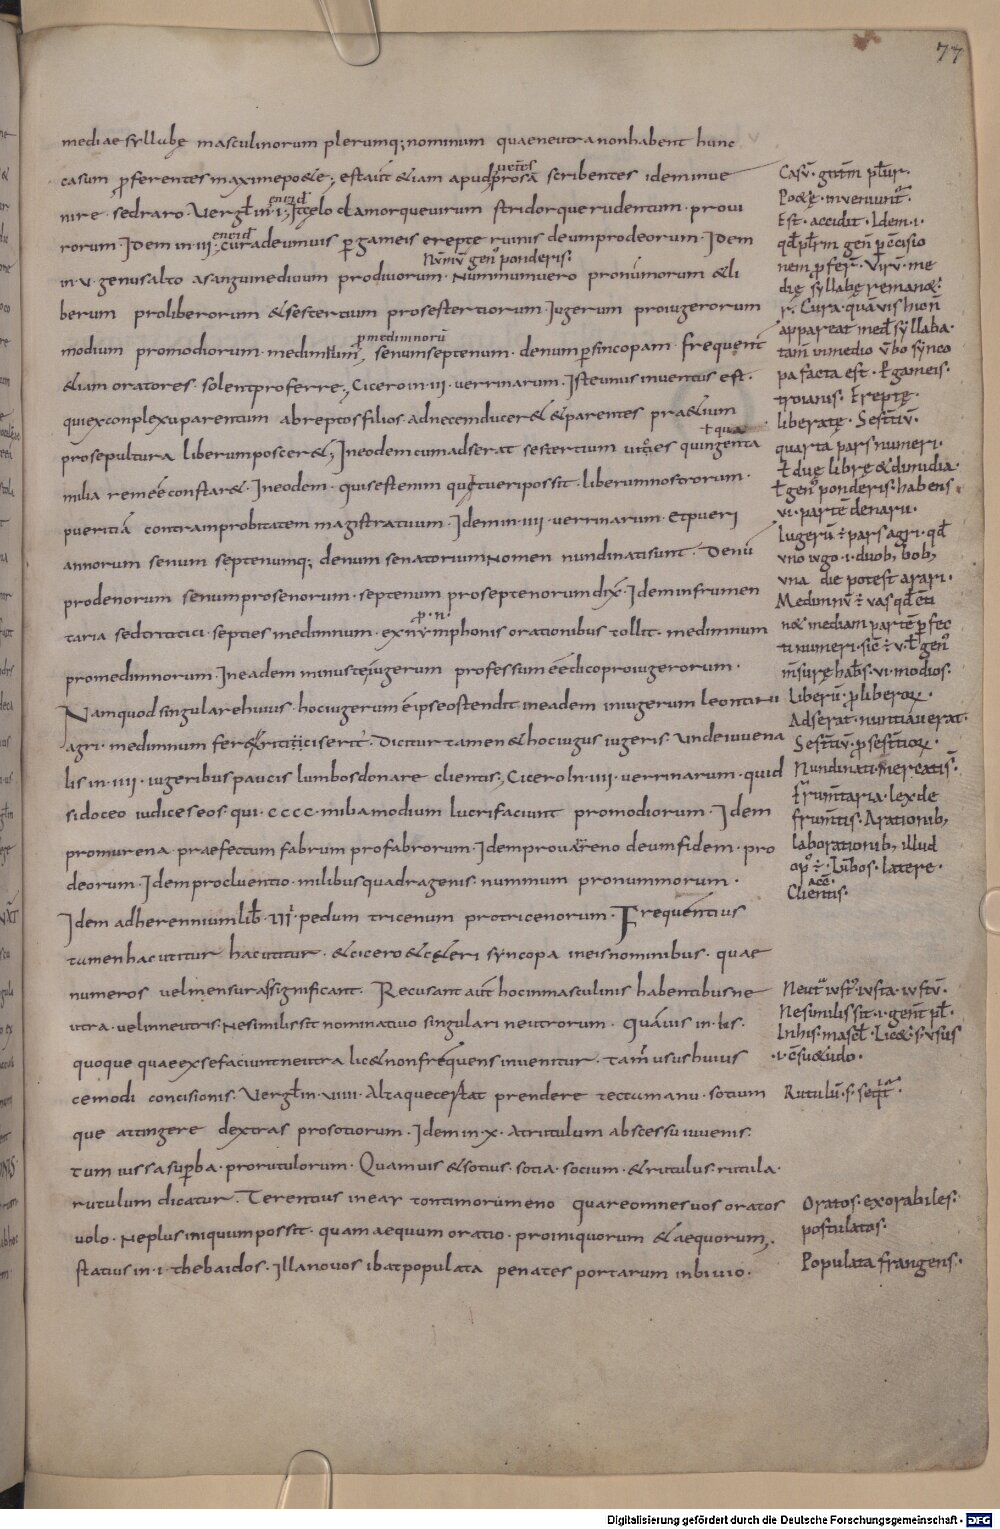 77
mediae syllabę masculinorum plerumq; nominum quae neutra non habent hunc
casum p̄ferentes maxime poetae; est aūt &iam apud prosā scribentes idem inve
nire sed raro. Vergl̄ in .i. It cęlo clamorque virum stridorque rudentum. pro vi
rorum. Idem in .iii. cura deum vis pergameis erepte ruinis deum pro deorum. Idem
Nūmū gen̄ ponderis.
in .v. genus alto a sanguine divum pro divorum. Nummum vero pro nummorum & li
berum pro liberorum & sestertium pro sestertiorum. Iugerum pro iugerorum
p̄ medimnorū
modium pro modiorum. medimnum, senum septenum. denum per sincopam. frequent
&iam oratores. solent proferre, Cicero in .iii. verrinarum. Iste unus inventus est.
qui ex complexu parentum abreptos filios ad necem ducer& & parentes pr&ium
pro sepultura liberum poscer&; In eodem cum adserat sestertium quingenta
milia rem eē constar&. In eodem. qui sestertium tueri possit. liberum nostrorum.
pueritiā contra improbitatem magistratuum. Idem in .iiii. verrinarum. Et pueri
annorum senum septenumq; denum senatorium nomen nundinati sunt. Denū
pro denorum senum pro senorum. septenum pro septenorum dix. Idem in frumen
taria septies medimnum. orationibus tollit. medimnum
pro medimnorum. In eadem minus te iugerum professum eē dico pro iugerorum.
Nam quod singulare huius. hoc iugerum ē ipse ostendit in eadem in iugerum leontini
agri. medimnum fere tritici serit. Dicitur tamen & hoc iugus iugeris. Unde iuvena
lis in .iiii. iugeribus paucis lumbos donare clientis; Cicero In .iiii. verrinarum. quid
si doceo iudices eos. qui .cccc. milia modium lucri faciunt pro modiorum. Idem
pro murena praefectum fabrum pro fabrorum. Idem pro vareno deum fidem. pro
deorum. Idem pro cluentio. milibus quadragenis. nummum pro nummorum.
Idem ad herennium lib̄ .iii. pedum tricenum pro tricenorum. Frequentius
tamen hac utitur hac utitur. & cicero & cęteri syncopa in eis nominibus. quae
numeros vel mensuras significant. Recusant aūt hoc in masculinis habentibus ne
utra. vel in neutris. Ne similis sit nominativo singulari neutrorum. Quāvis in his.
quoque quae ex se faciunt neutra lic& non frequens invenitur. tam̄ usus huius
cemodi concisionis. Vergl̄ in .viiii. Altaque certat prendere tecta manu. sotium
que attingere dextras pro sotiorum. Idem in .x. At rutulum abscessu iuvenis.
tum iussa superba. pro rutulorum. Quamvis & sotius. sotia. socium. & rutulus. rutula.
rutulum dicatur. Terentius in eautontimorumeno quare omnes vos oratos
volo. Ne plus iniquum possit. quam aequum oratio. pro iniquorum & aequorum,
statius in .i. thebaidos. Illa novos ibat populata penates portarum in bivio.
Casū. gn̄tm pl̄ur.
Poetę. inveniunt̄.
Est. accidit. Idem .i.
qd̄ pl̄rm gen̄ p̄cisio
nem p̄fer̄. Virū. me
dię syllabę reman&.
r̄. Cura. quāvis hic nōn
appareat med̄ syllaba.
tam̄ in medio v̄bo synco
pa facta est. Pergameis.
troianis. Ereptę.
liberatę. Sest̄tiū.
quarta pars numeri.
ł duę librę & dimidia.
ł gen̄ ponderis. habens
.vi. partē denarii.
Iugerū ÷ pars agri. qd̄
uno iugo .i. duob; bob;
una die potest arari.
Medimnū ÷ vas qd̄ etī
n& mediam partē p̄fec
ti numeri. sic ÷ .v. ł gen̄
mēsurę hab&s .vi. modios.
Liberū. p̄ liberoꝝ.
Adserat. nuntiaverat.
Sest̄tiū. p̄ sest̄tioꝝ.
Nundinati. mercatis.
Frum̄taria. lex de
frum̄tis. Arationib;
laborationib; illud
op; ÷. Lūbos. latere.
Clientis.
Neut̄ iust. iusta. iustū.
Ne similis sit .i. gen̄t pl̄.
In his. mascl̄. Lic&. s. usus
.i. c̄su&udo.
Rutulū. s. seq̄t̄.
Oratos. exorabiles.
postulatos.
Populata frangens.
Digitalisierung gefördert durch die Deutsche Forschungsgemeinschaft - DFG